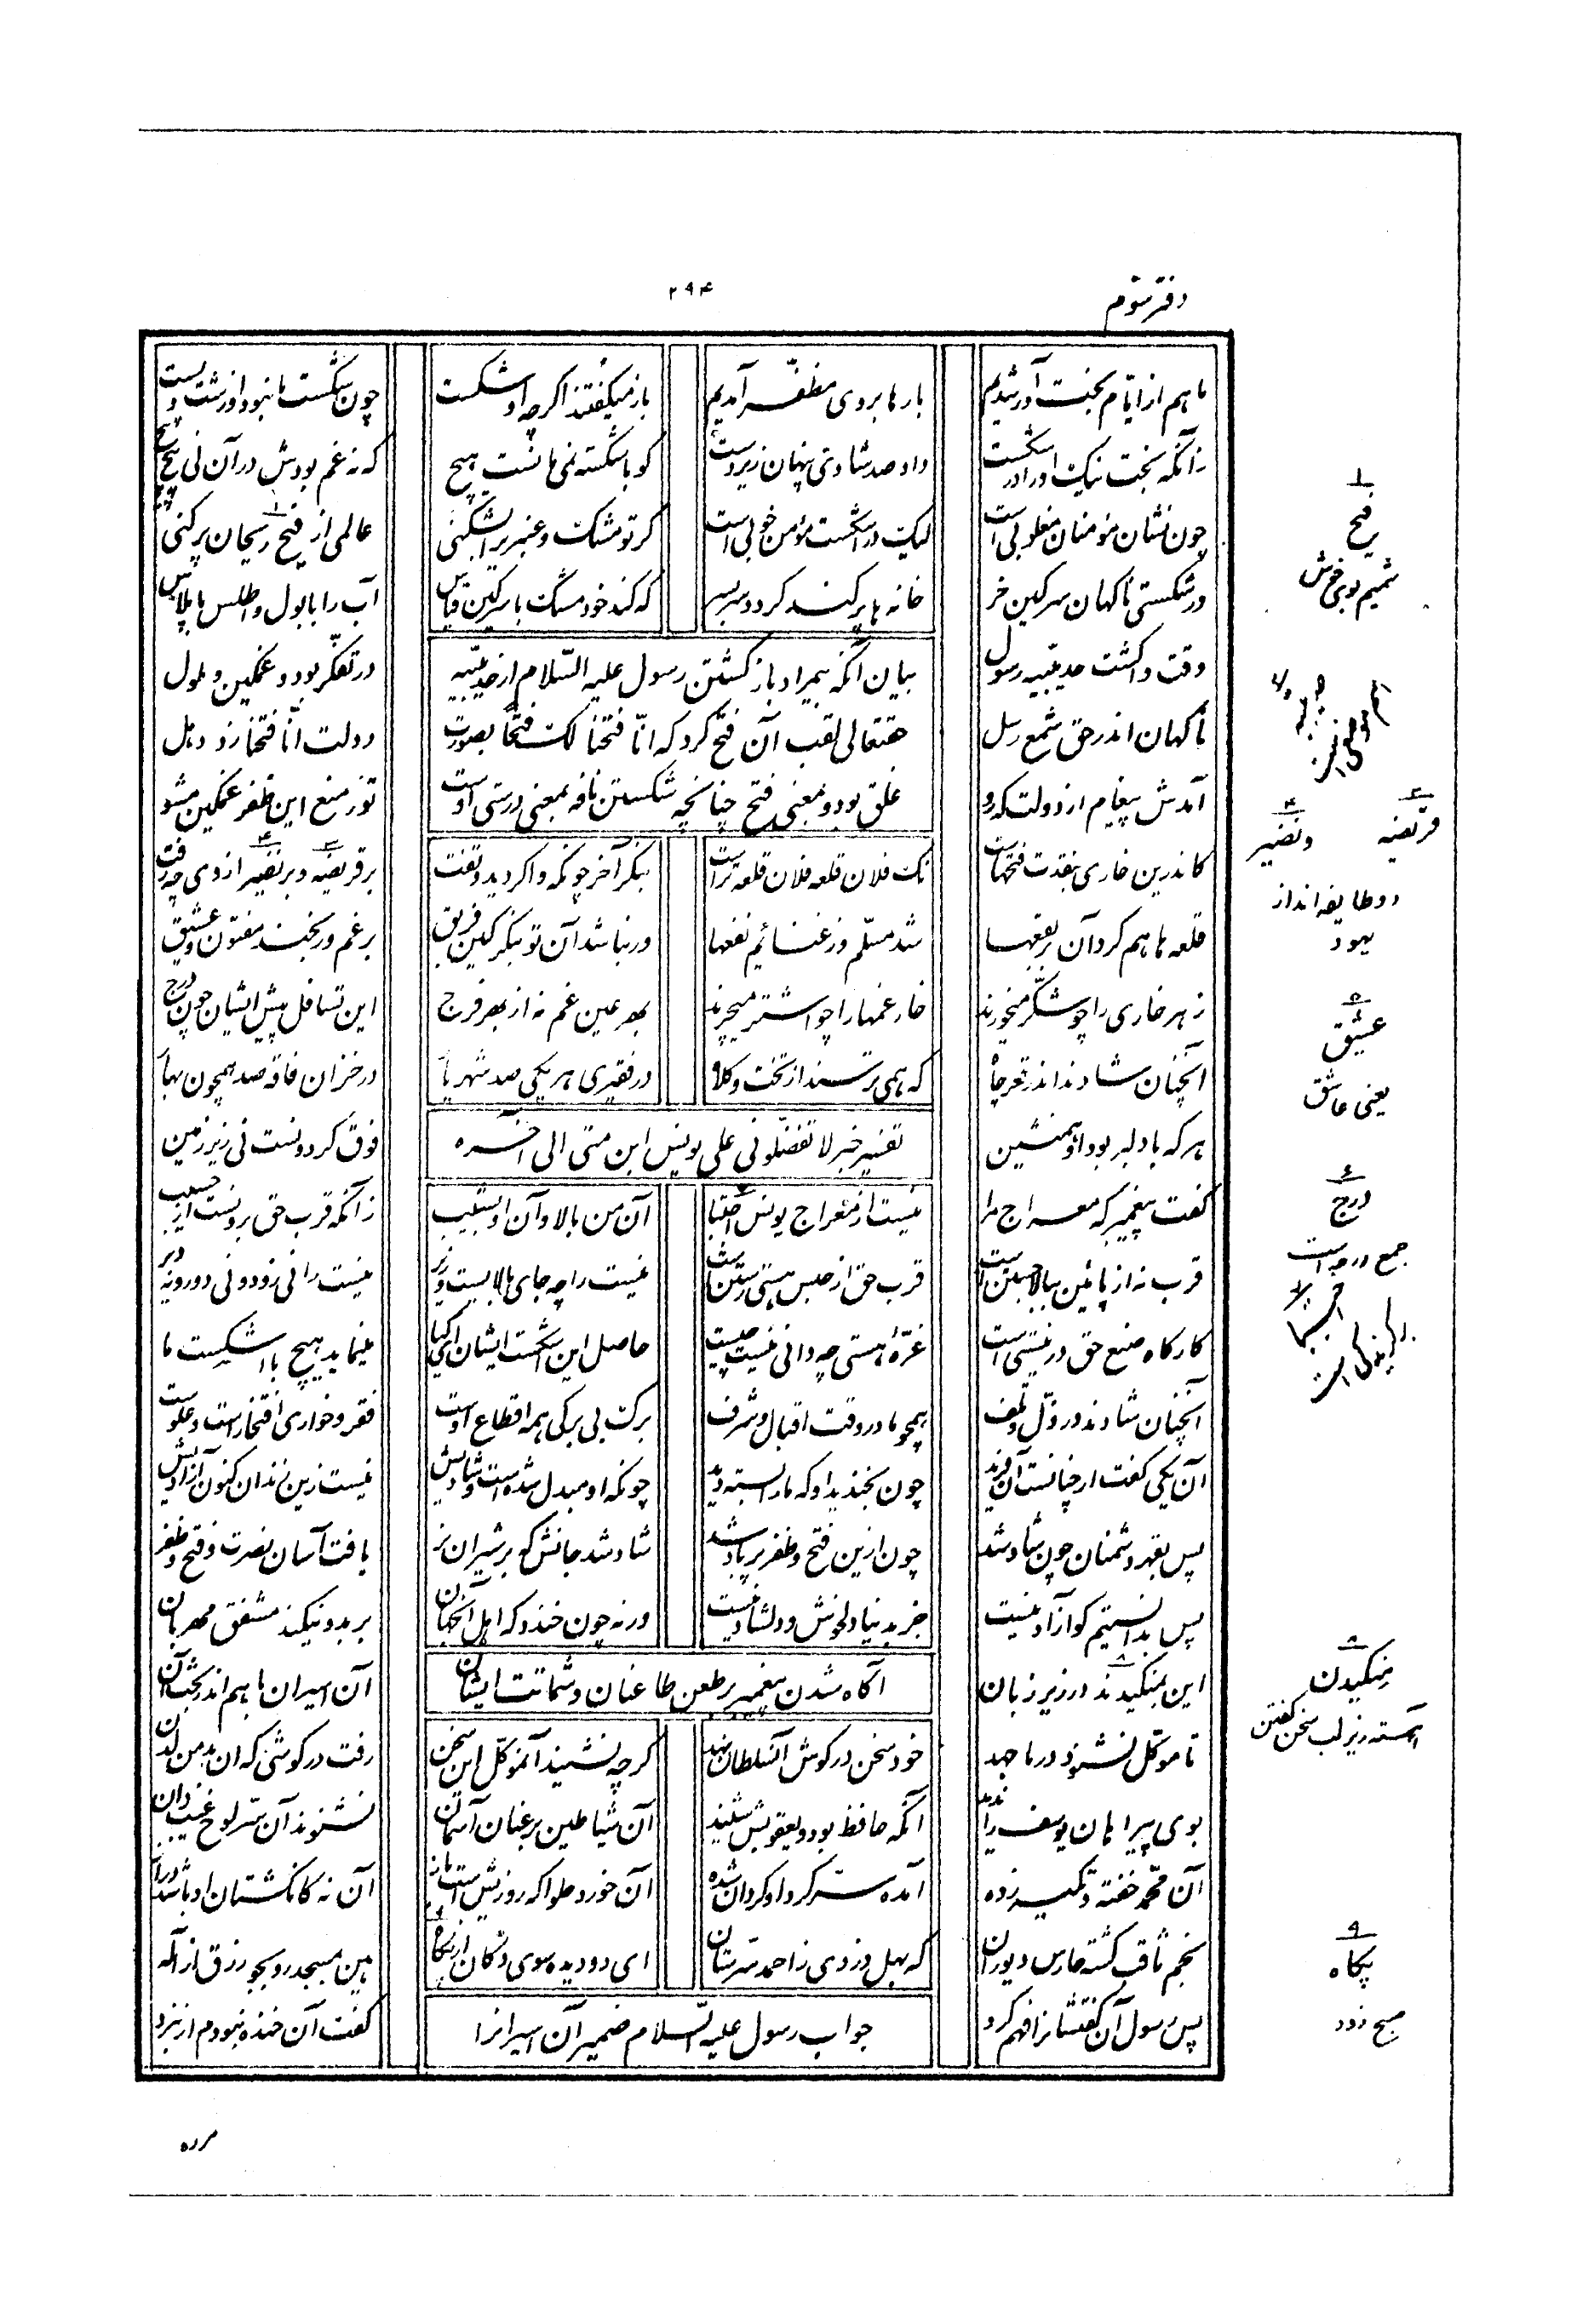 دفتر سوم
۲۹۴
ما هم از ایام بخت آور شدیم بارها بر وی مظفر آمدیم باز میگفتند اگرچه او شکست چون شکست ما نبود او زشت و پست
زآنکه بخت نیک او را در شکست داد صد شادی پنهان زیر دست کو باشکسته نمی مانست هیچ که نه غم بودش در آن نی پیچ پیچ
چون نشان مؤمنان مغلوبی است لیک در اشکست مؤمن خوبی است گر تو مشک و عنبری را بشکنی عالمی از فیح ریحان پر کنی
ور شکستی ناگهان سرگین خر خانه ها پر گند گردد سربسر که کند خود مشک با سرگین قیاس آب را با بول و اطلس با پلاس
بیان آنکه بیمراد باز گشتن رسول علیه السّلام از حدیبیه
حقتعالی لقب آن فتح کرد که انّا فتحنا لک فتحاً بصورت
غلق بود و بمعنی فتح چنانچه شکستن نافه بمعنی درستی اوست
وقت واگشت حدیبیه رسول در تفکّر بود و غمگین و ملول
ناگهان اندر حق شمع رسل دولت انّا فتحنا زد دهل
آمدش پیغام از دولت که رو تو ز منع این ظفر غمگین مشو
کاندرین خاری بنقدت فتحهاست نک فلان قلعه فلان قلعه تراست بنگر آخر چونکه واگردید تفت بر قریضه و بر نضیر از وی چه رفت
قلعه ها هم گرد آن بقعها شد مسلّم وز غنائم نفعها ور نباشد آن تو بنگر کین فریق بر غم و رنجند مفتون و عشیق
زهر خاری را چو شکّر میخورند خار غمها را چو اشتر میچرند بهر عین غم نه از بهر فرج این تسافل پیش ایشان چون درج
آنچنان شادند اندر قعر چاه که همی ترسند از تخت و کلاه در فقیری هر یکی صد شهریار در خزان فاقه صد همچون بهار
تفسیر خبر لا تفضّلونی علی یونس ابن متی الی آخره
هر که با دلبر بود او همنشین فوق گردونست نی زیر زمین
گفت پیغمبر که معراج مرا نیست از معراج یونس اجتبا آن من بالا و آن او بشیب زآنکه قرب حق برونست از حسیب
قرب نه از پائین ببالا جستن است قرب حق از حبس هستی رستن است نیست را چه جای بالایست و زیر نیست را نی زود و نی دور و نه دیر
کارگاه صنع حق در نیستی است غرّهٔ هستی چه دانی نیست چیست حاصل این اشکست ایشان ای کیا مینماید هیچ با اشکست ما
آنچنان شادند در ذلّ و تلف همچو ما در وقت اقبال و شرف برگ بی برگی همه اقطاع اوست فقر و خواری افتخارست و علوست
آن یکی گفت ار چنانست آن فرید چون بخندید او که ما را بسته دید چونکه او مبدل شده است و شادیش نیست زین زندان کنون آزادیش
پس بقهر دشمنان چون شاد شد چون ازین فتح و ظفر پر باد شد شاد شد جانش که بر شیران نر یافت آسان نصرت و فتح و ظفر
پس بدانستیم کو آزاد نیست جز بدنیا دلخوش و دلشاد نیست ورنه چون خندد که اهل آنجهان بر بد و نیکند مشفق مهربان
آگاه شدن پیغمبر بر طعن طاغیان و شماتت ایشان
این بمنگیدند در زیر زبان آن اسیران با هم اندر بحث آن
تا موکّل نشنود در ما جهد خود سخن در گوش آنسلطان نهد گرچه نشنید آنموکّل این سخن رفت در گوشی که آن بد من لدن
بوی پیراهان یوسف را ندید آنکه حافظ بود و یعقوبش شنید آن شیاطین بر عنان آسمان نشنوند آن سرّ لوح غیب دان
آن محمّد خفته و تکیه زده آمده سرّ گرد او گردان شده آن خورد حلوا که روزیش است باز آن نه کانگشتان او باشد دراز
نجم ثاقب گشته حارس دیوران که بهل دزدی ز احمد سرّ ستان ای دویده سوی دکّان از پگاه هین بمسجد رو بجو رزق از اله
جواب رسول علیه السّلام ضمیر آن اسیرانرا
پس رسول آن گفتشانرا فهم کرد گفت آن خنده نبودم از نبرد
۱
فیح
شمیم بوی خوش
۳
قریضه
۴
ونضیر
دو طایفه اند از
یهود
۵
عشیق
یعنی عاشق
۶
درج
جمع درجه است
۸
منگیدن
آهسته زیر لب سخن گفتن
۹
پگاه
صبح زود
مرده